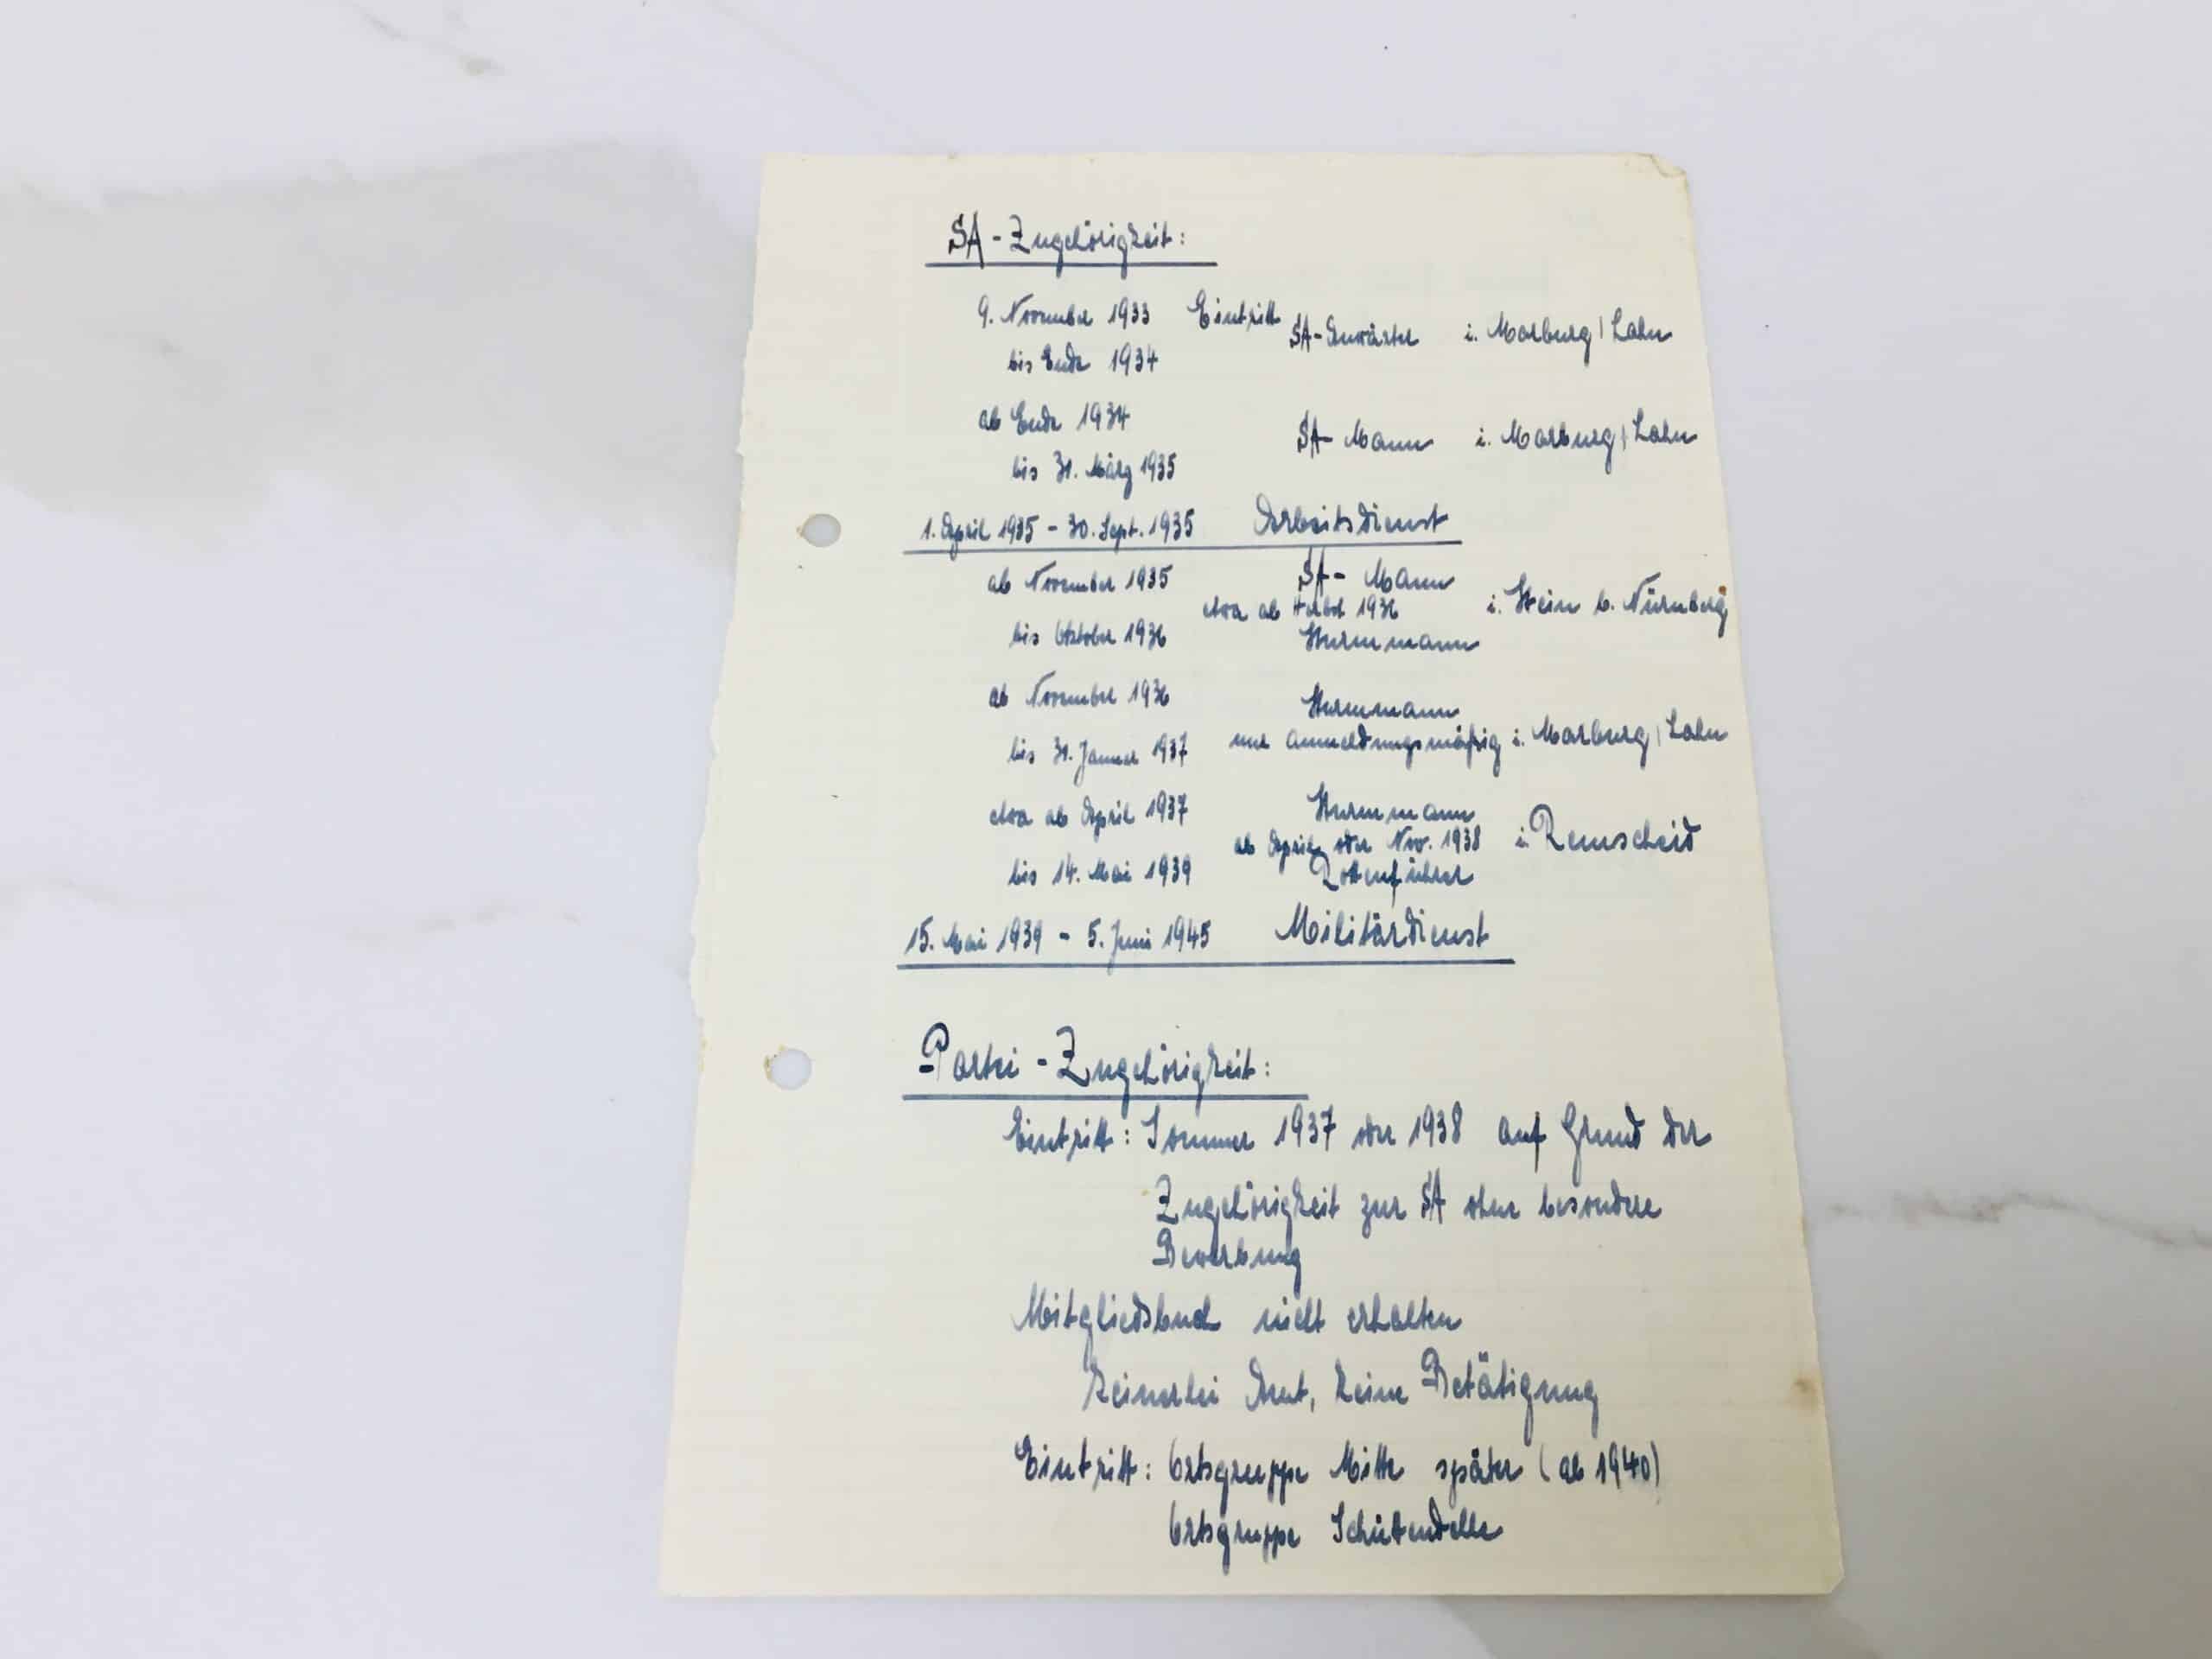 SA-Zugehörigkeit:
9. November 1933 Eintritt
SA-Anwärter i. Marburg/Lahn
bis Ende 1934
ab Ende 1934
SA-Mann i. Marburg/Lahn
bis 31. März 1935
1. April 1935 - 30. Sept. 1935 Arbeitsdienst
ab November 1935 SA-Mann
etwa ab Herbst 1936 i. Stein b. Nürnberg
bis Oktober 1936 Sturmmann
ab November 1936 Sturmmann
nur anmeldungsmäßig i. Marburg/Lahn
bis 31. Januar 1937
etwa ab April 1937 Sturmmann
ab April oder Nov. 1938 i. Remscheid
bis 14. Mai 1939 Rottenführer
15. Mai 1939 - 5. Juni 1945 Militärdienst
Partei-Zugehörigkeit:
Eintritt: Sommer 1937 oder 1938 auf Grund der
Zugehörigkeit zur SA ohne besondere
Bewerbung
Mitgliedsbuch nicht erhalten
Keinerlei Amt, keine Betätigung
Eintritt: Ortsgruppe Mitte später (ab 1940)
Ortsgruppe Schüttendelle